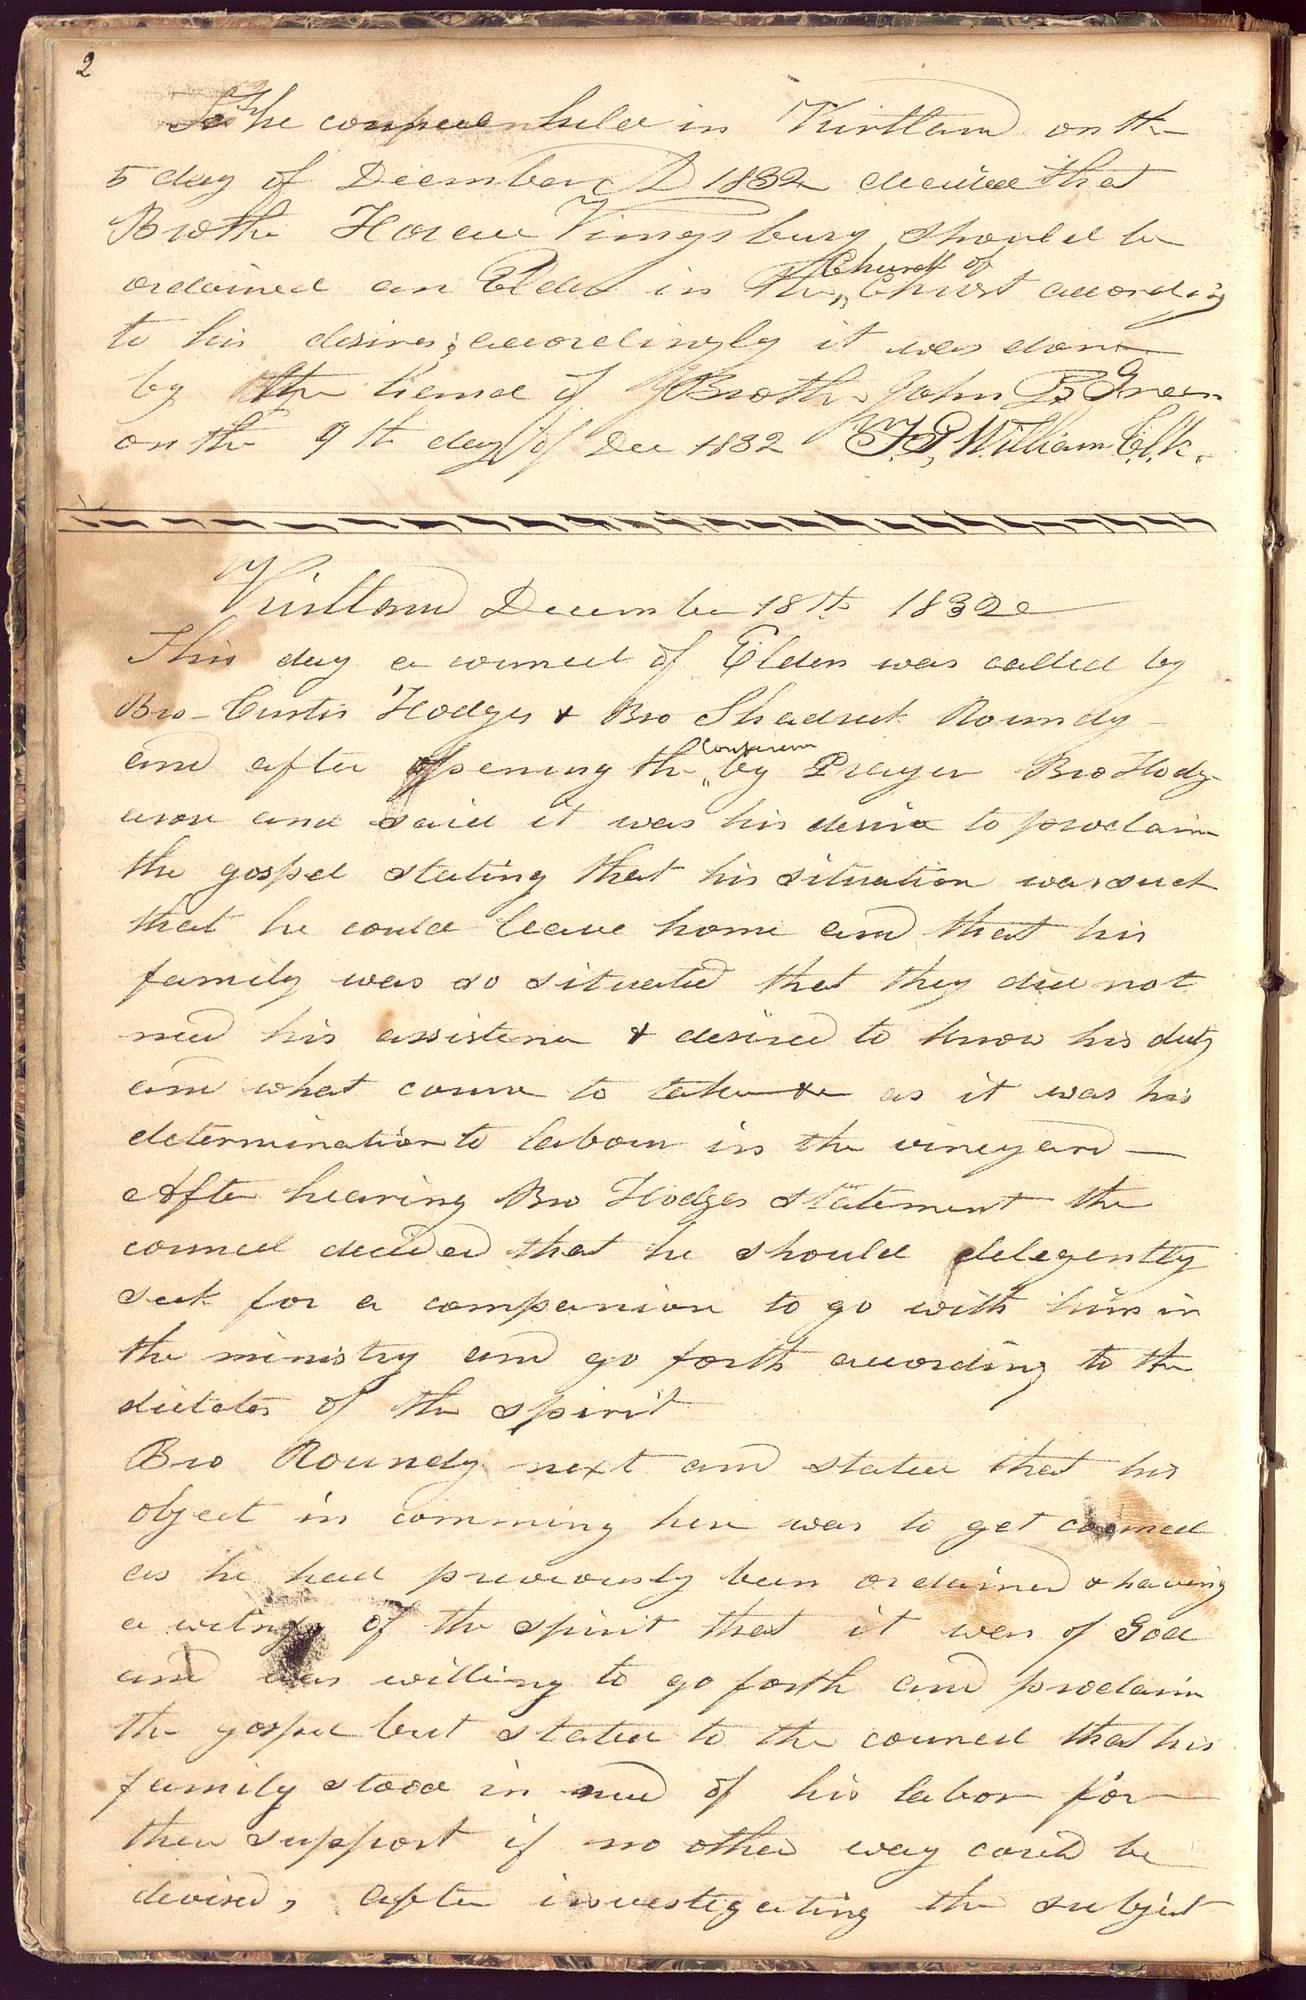 2
The conference held in Kirtland on the
5 day of December AD 1832 decided that
Brothe Horace Kingsbury should be
ordained an Elder in the Church of Christ according
to his desires; accordingly it was done
by the hand of Brother John P Green
on the 9th day of Dec 1832 F. G. William Clk.
Kirtland December 18th 1832
This day a council of Elders was called by
Bro Curtis Hodges & Bro Shadrick Roundy
and after opening the Conferenc by Prayer Bro Hodges
arose and said it was his desire to proclaim
the gospel stating that his situation was such
that he could leave home and that his
family was so situated that they did not
need his assistence & desired to know his duty
and what course to take as it was his
determination to labour in the vineyard —
After hearing Bro Hodges statement the
council decided that he should delegently
seek for a companion to go with him in
the ministry and go forth according to the
dictates of the spirit
Bro Roundy next and stated that his
object in comming here was to get council
as he had previously been ordained & having
a witness of the spirit that it was of God
and was willing to go forth and proclaim
the gospel but stated to the council that his
family stood in need of his labor for
their support if no other way could be
devised, after investigating the subject